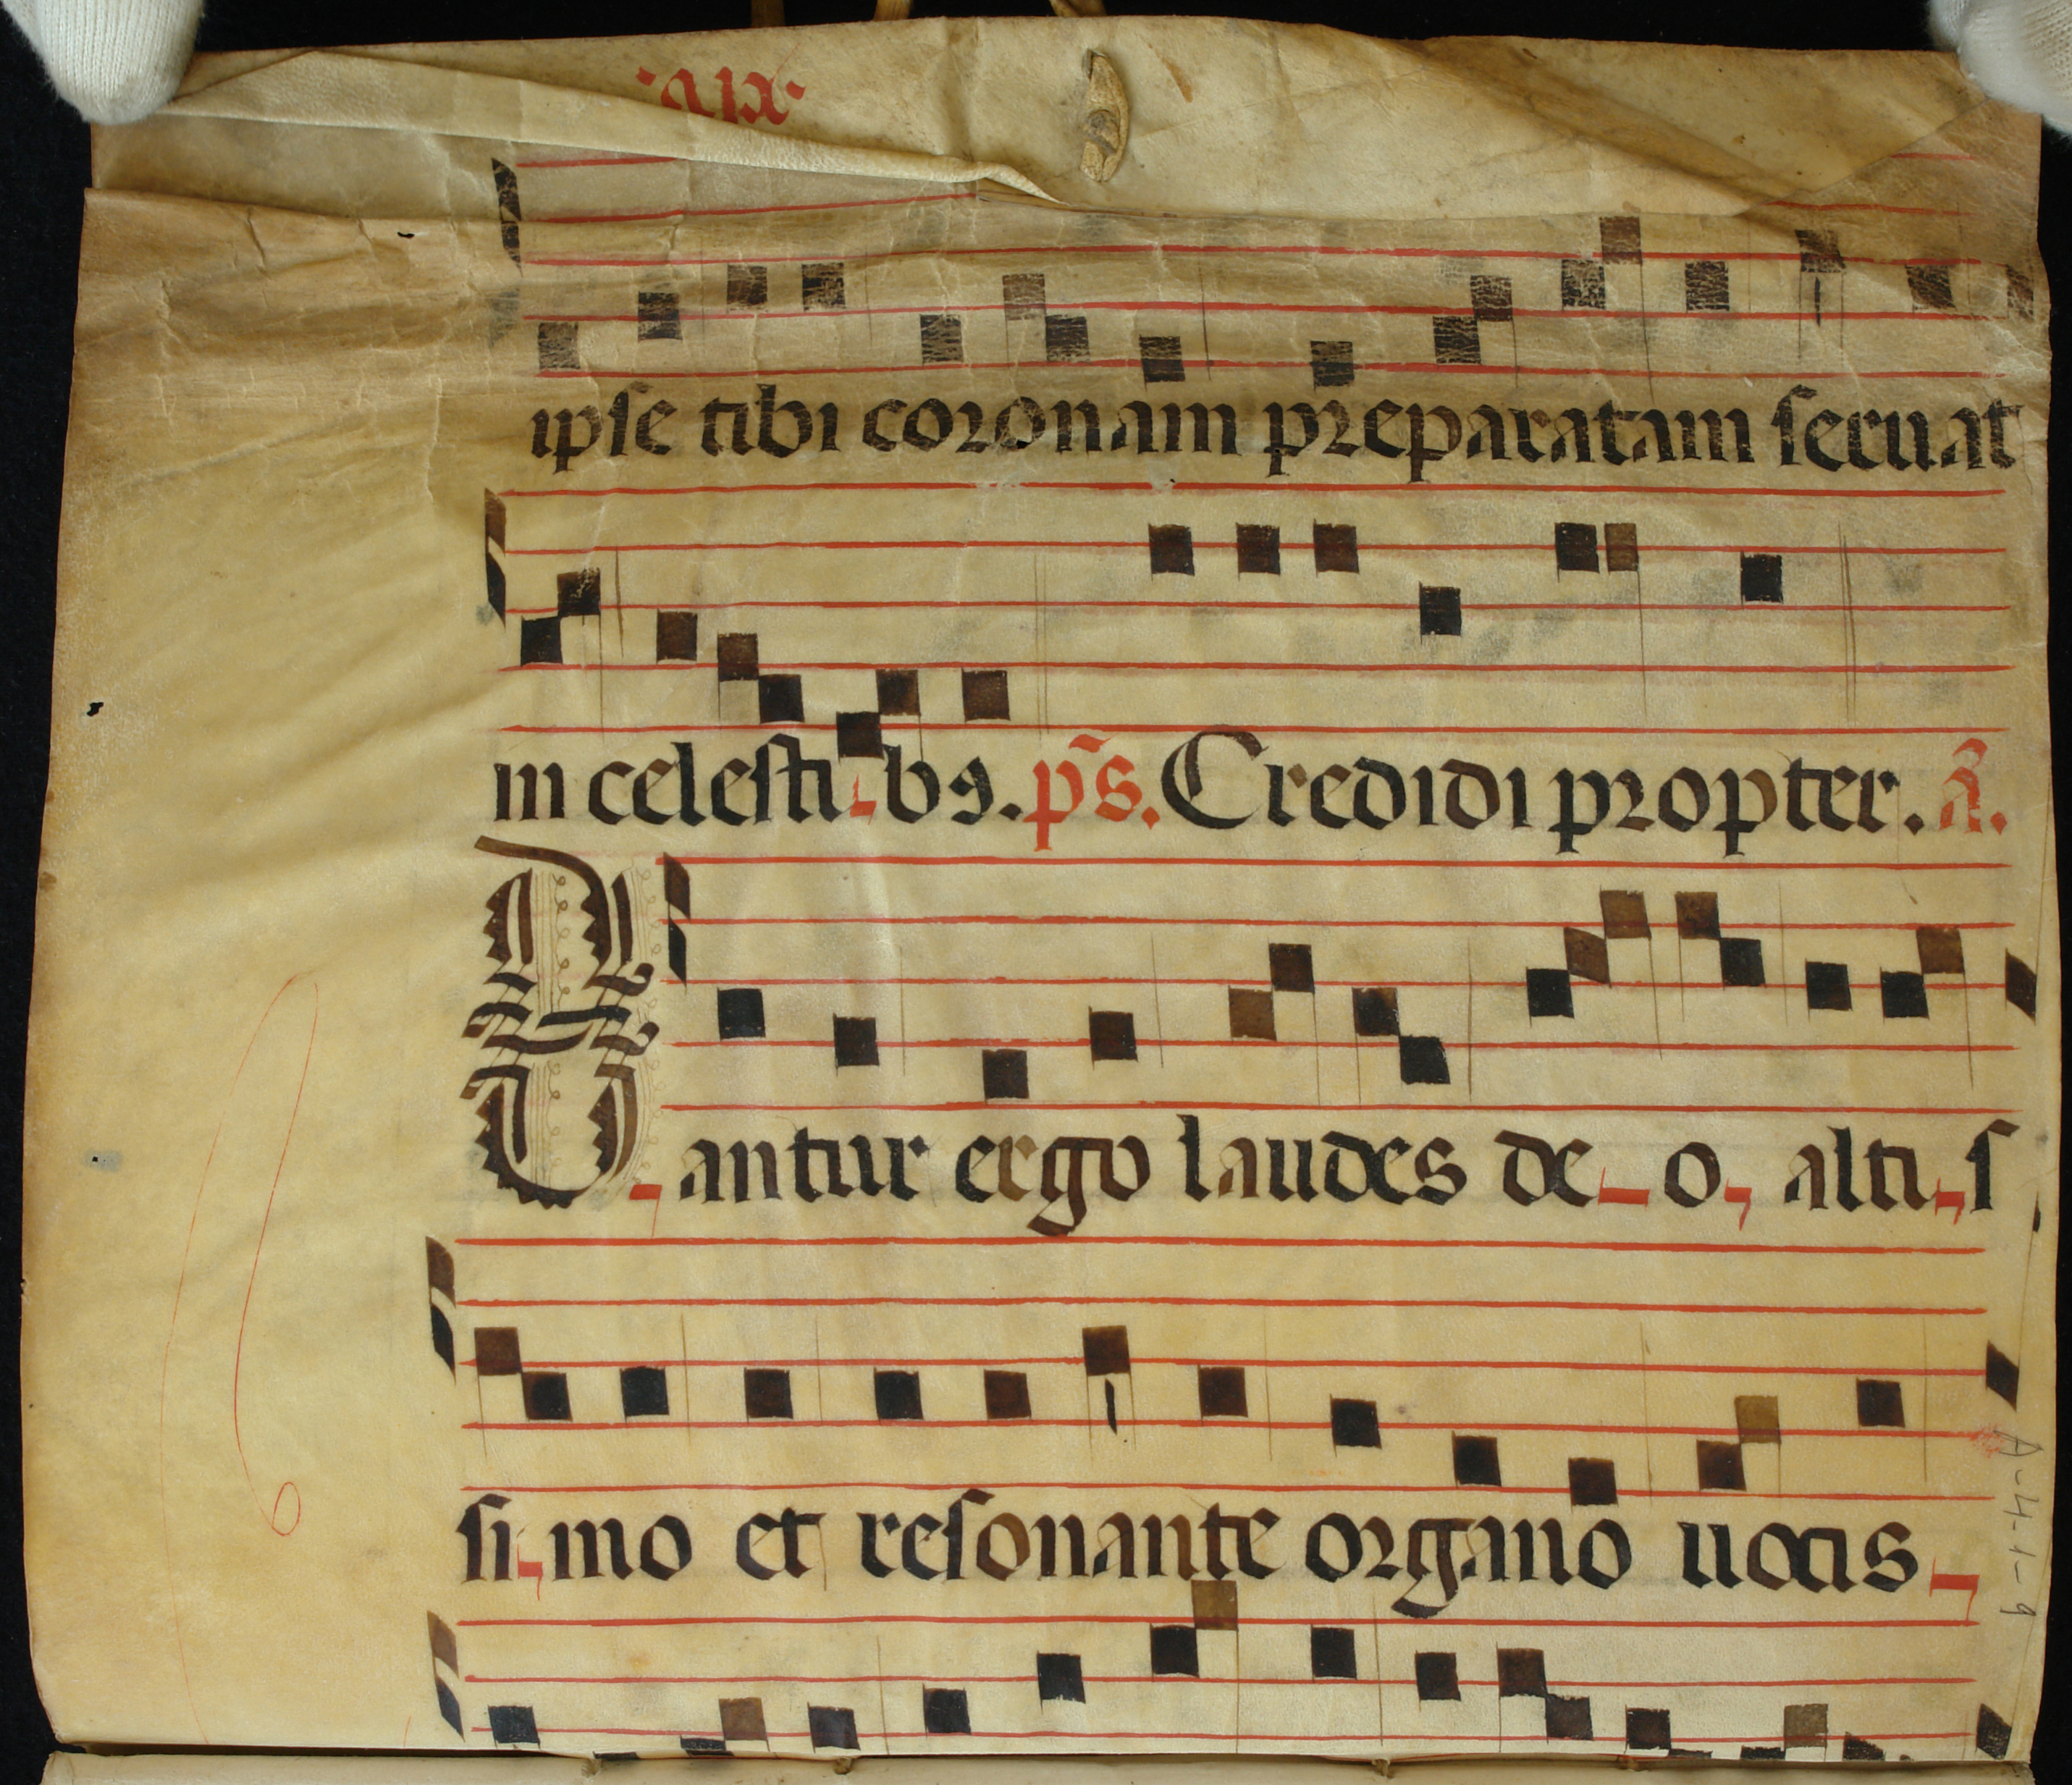 ipse tibi coronam preparatam seruat
in celesti bꝯ. ps̄. Credidi propter. ā.
Cantur ergo laudes de o, alti s
si mo et resonante organo uocis
A-4-1-9